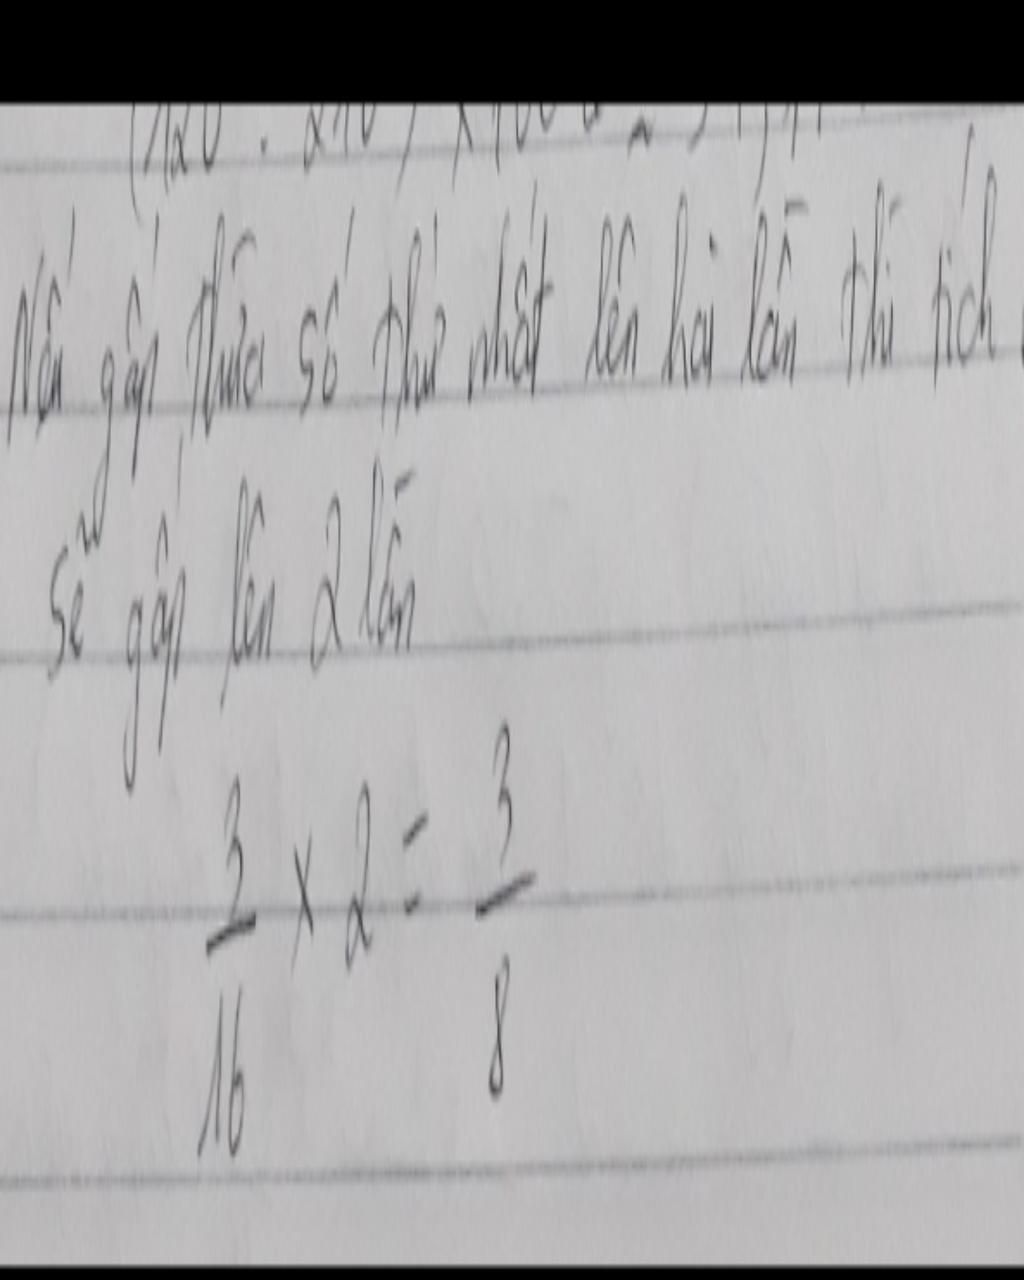 Nếu gấp thừa số thứ nhất lên hai lần thì tích
sẽ gấp lên 2 lần
3/16 x 2 = 3/8